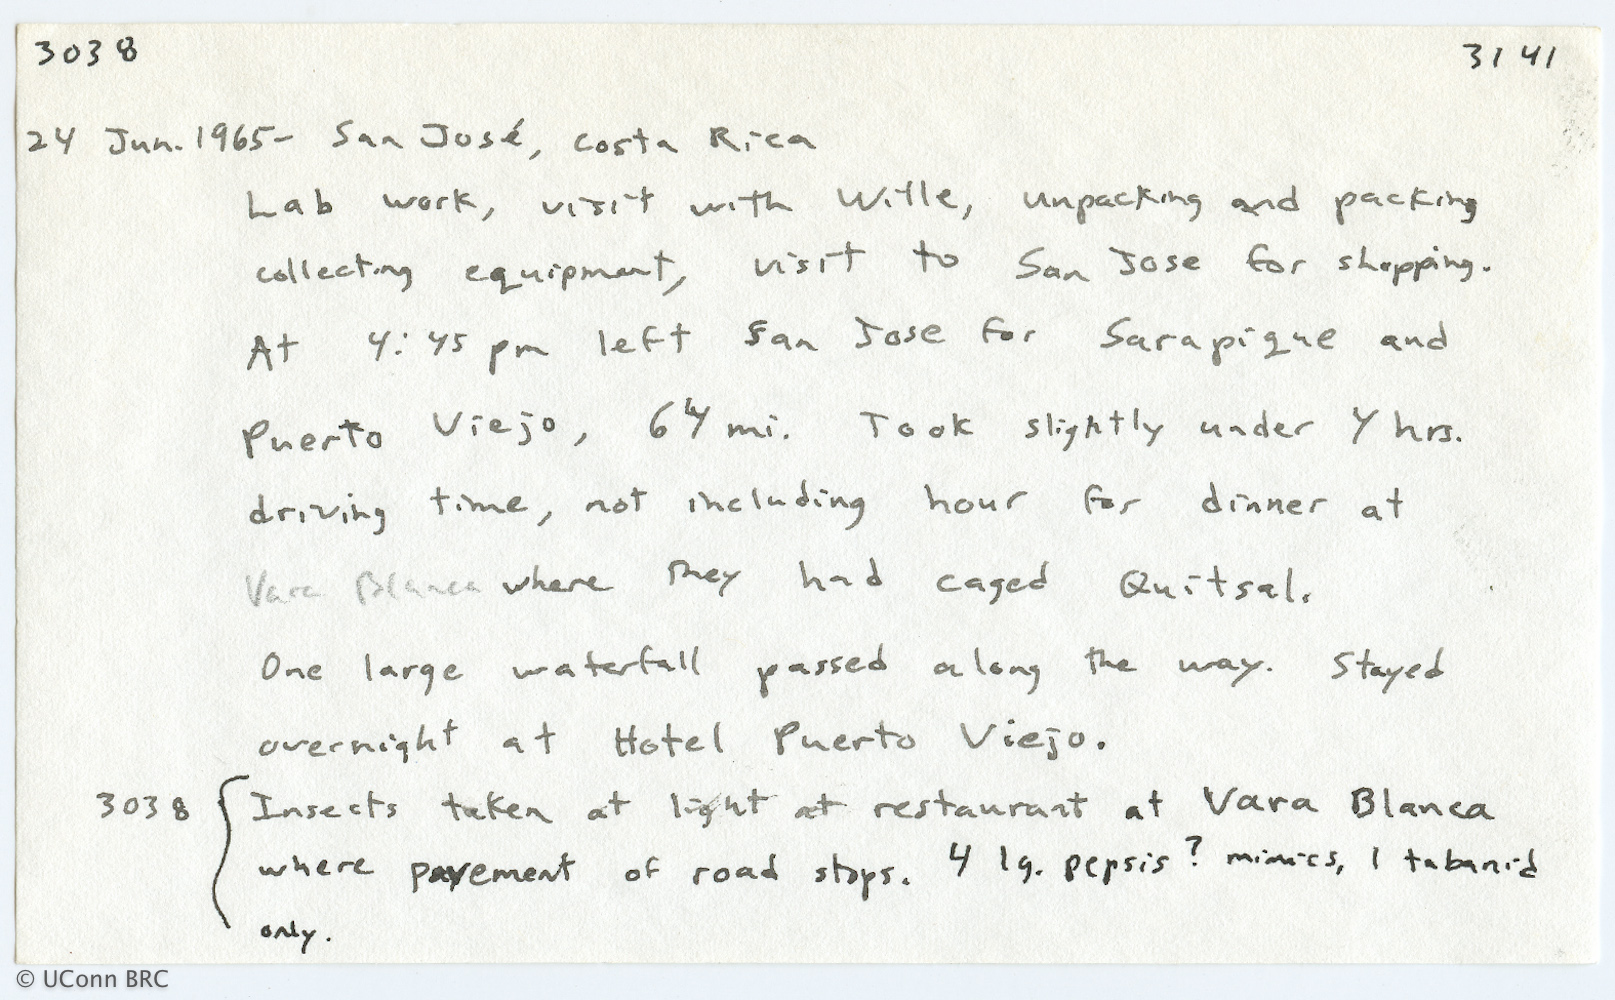 3038 3141
24 Jun. 1965- San José, Costa Rica
Lab work, visit with Wille, unpacking and packing
collecting equipment, visit to San Jose for shopping.
At 4:45 pm left San Jose for Sarapique and
Puerto Viejo, 64 mi. Took slightly under 4 hrs.
driving time, not including hour for dinner at
Vara Blanca where they had caged Quitsal.
One large waterfall passed along the way. Stayed
overnight at Hotel Puerto Viejo.
3038 { Insects taken at light at restaurant at Vara Blanca
where pavement of road stops. 4 lg. pepsis? mimics, 1 tabanid
only.
© UConn BRC